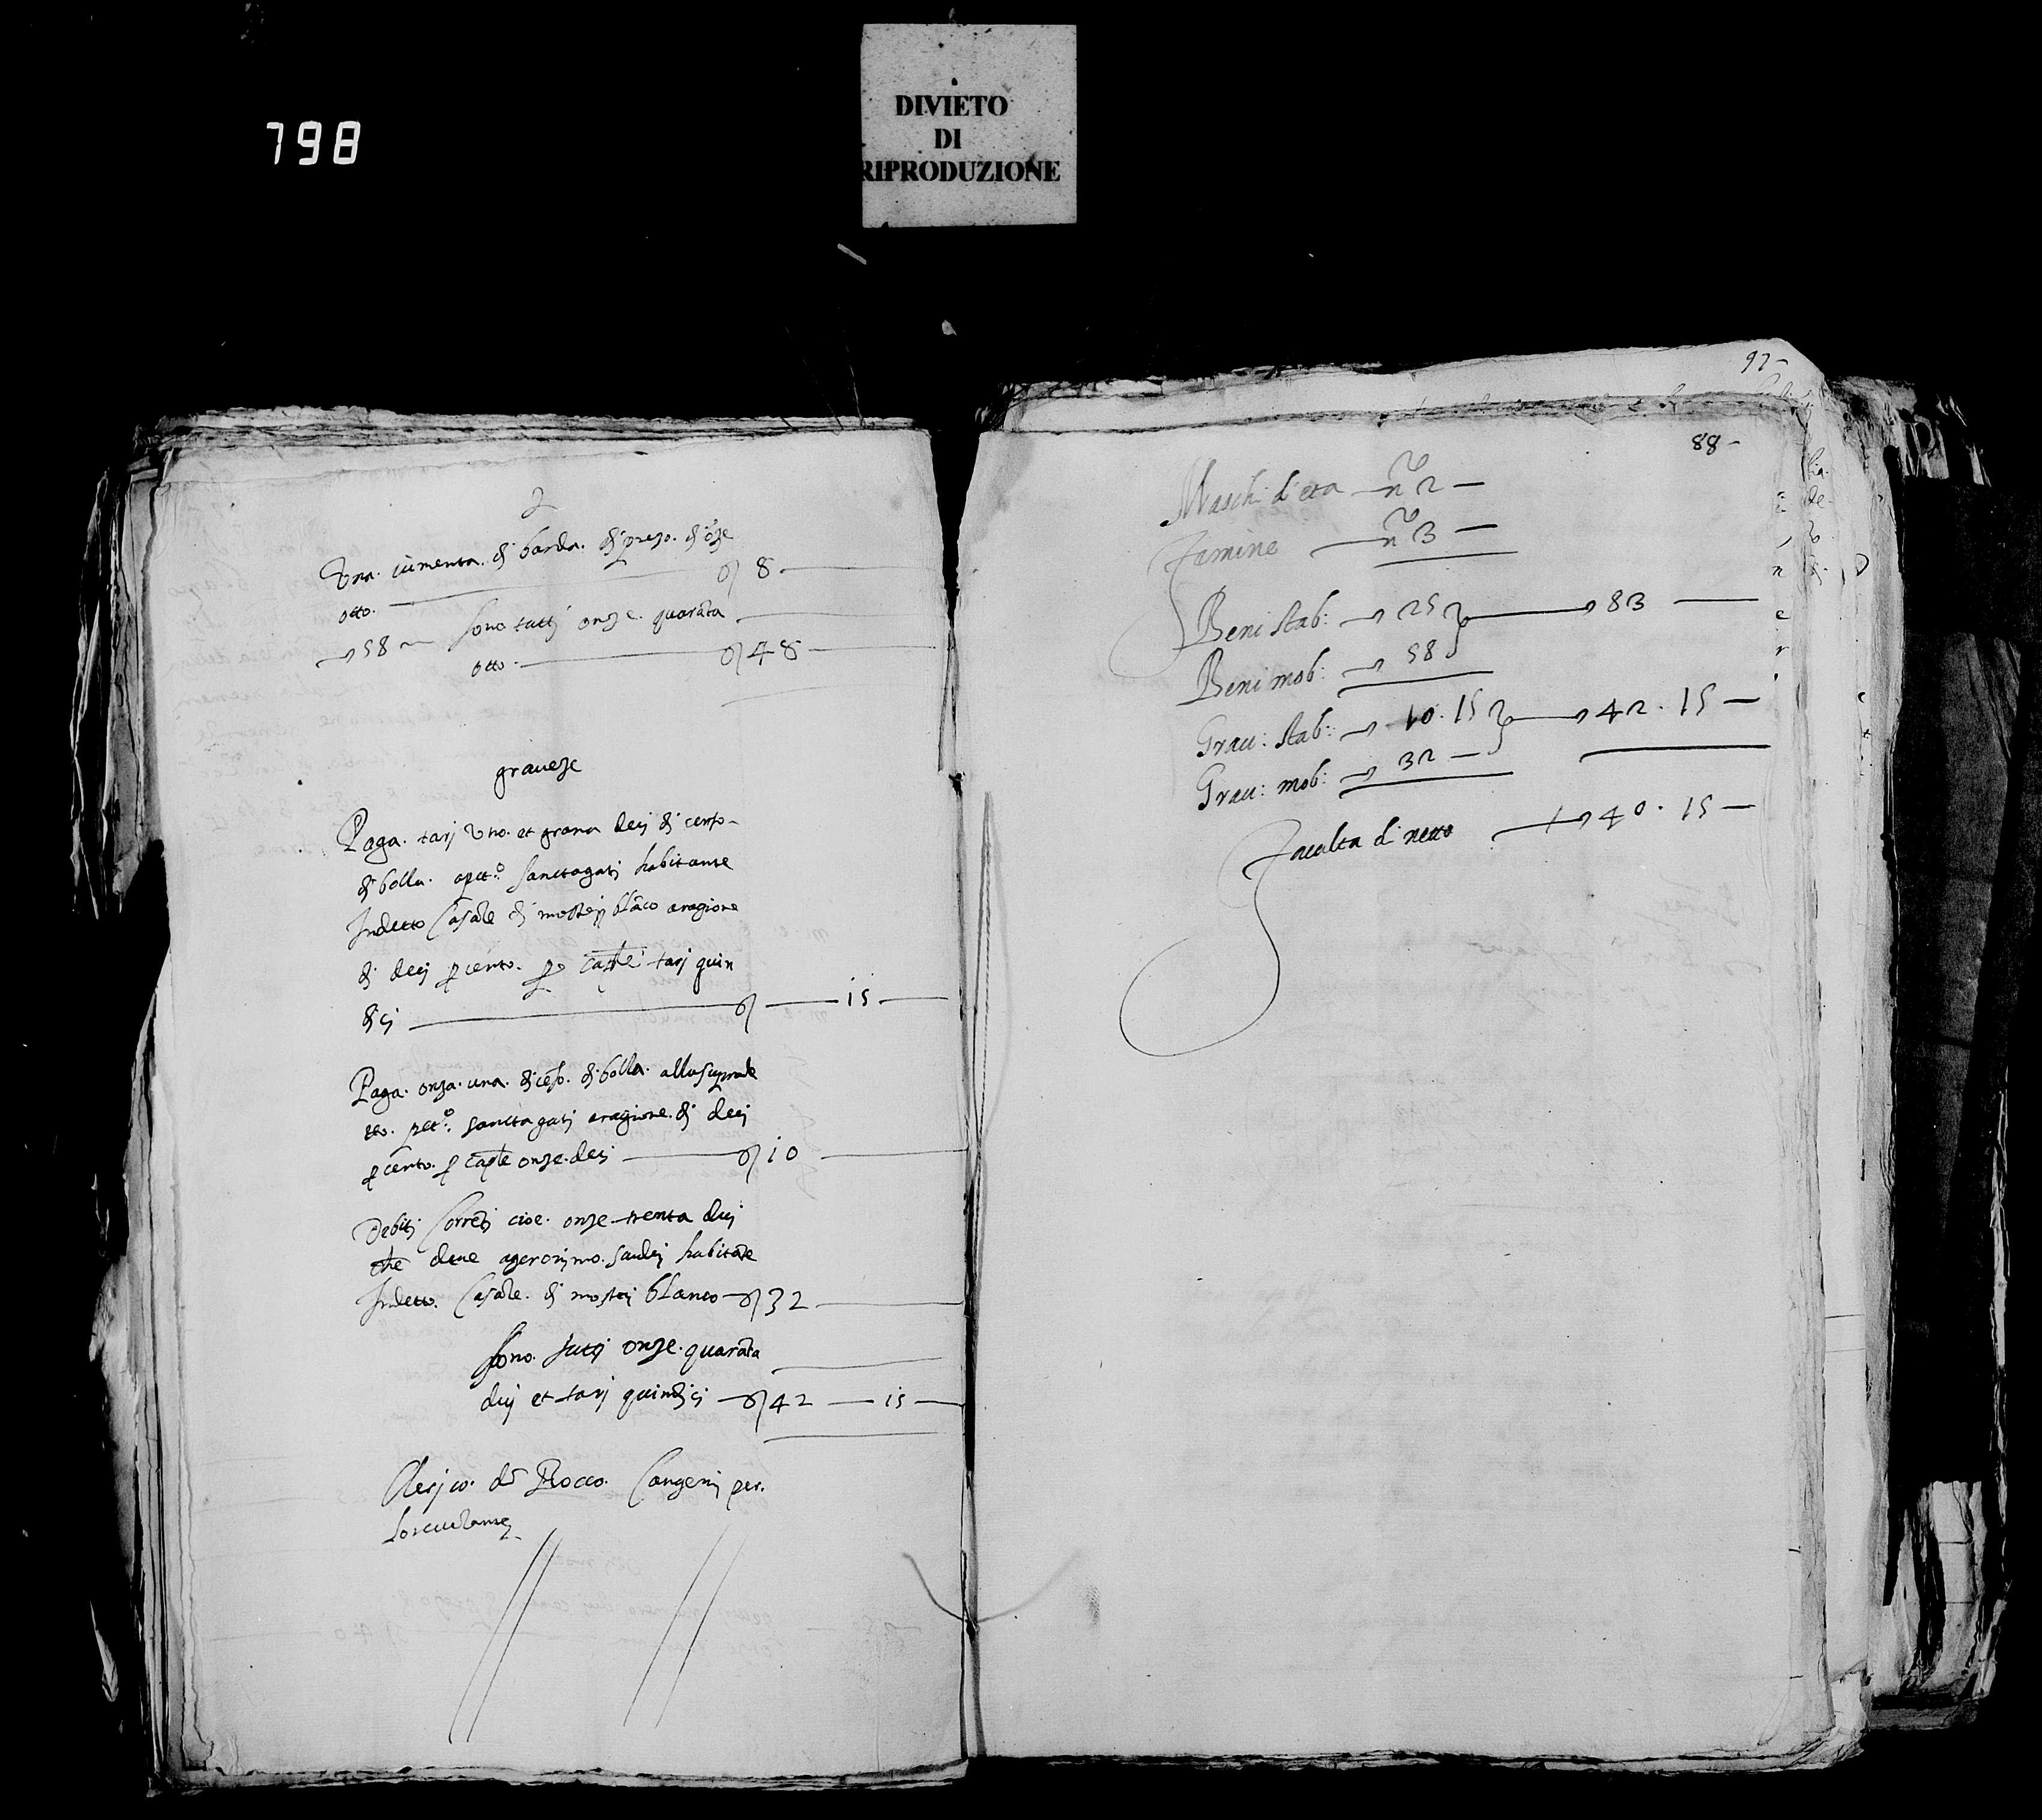 798
DIVIETO
DI
RIPRODUZIONE
Una. iumenta. di barda. di prezo. di onze
otto. 8
58 sono tutti onze. quarata
otto. 48
graveze
Paga. tarj uno. et grana deci di censo
di bolla. Sanctagati habitante
Indetto Casale di mostezj blāco aragione
di decj p cento. p tarj quin
dicj 15
Paga. onza. una. di ceso. di bolla. allo suprade
tto. Sanctagati aragione. di decj
p cento. p onze. decj 10
Debitj Corretj cioe. onze trenta duj
che deve ageronimo. habitate
Indetto. Casale. di mostezj blanco 32
sono. tutti onze. quarata
duj et tarj quindicj 42 15
Clerico. Rocco. Cangemj per.
97
88
Maschi d'eta n 2
Famine n 3
Beni Stab: 25 83
Beni mob: 58
Grau: Stab: 10. 15 42. 15
Grau: mob: 32
Facolta di netto 40. 15